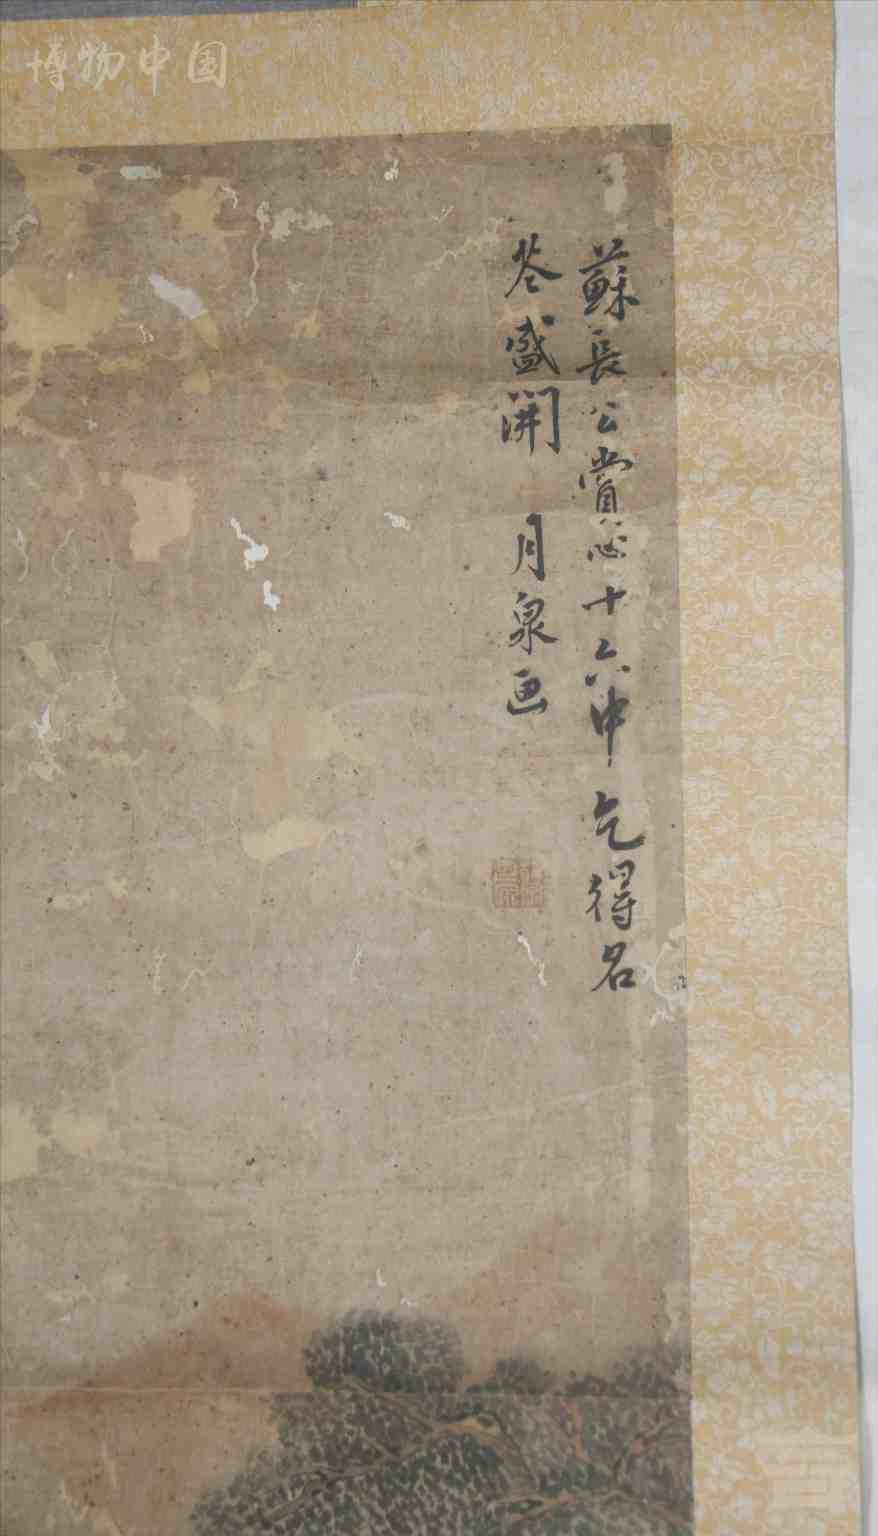 博物中国
蘇長公賞心十六中乞得名
花盛開 月泉画